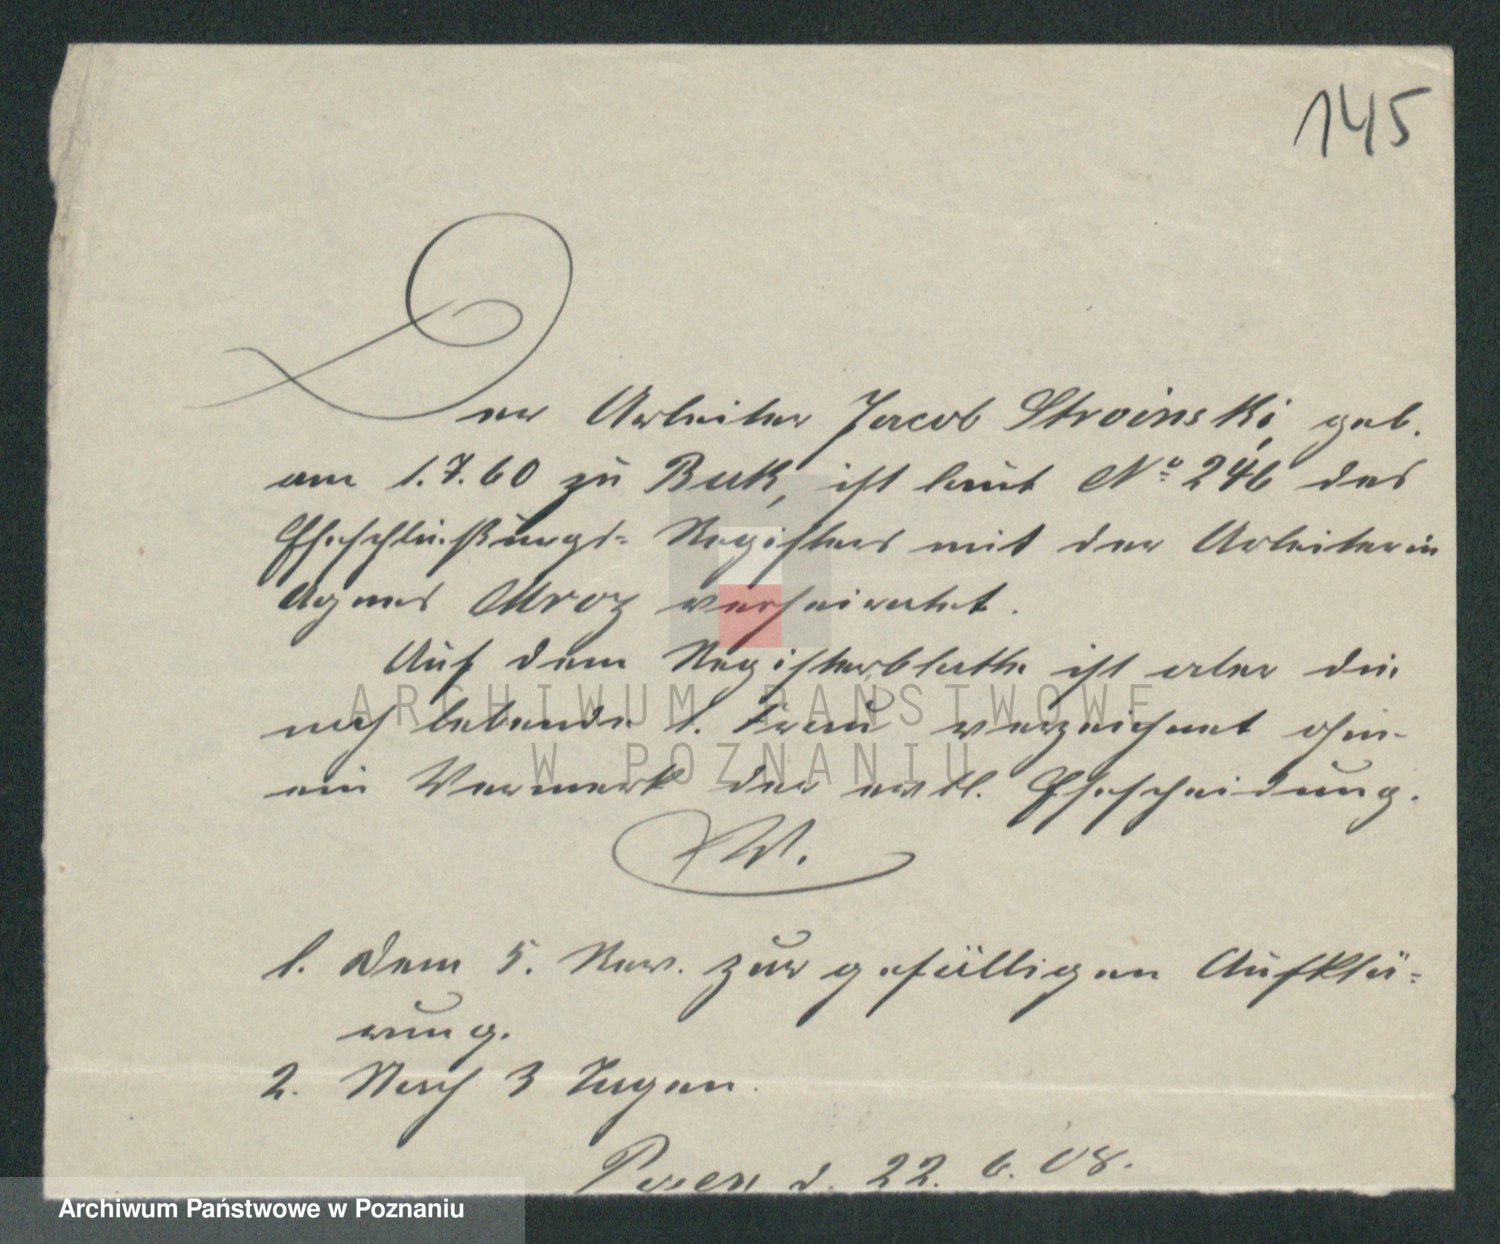 145
Der Arbeiter Jacob Stroinski, geb.
am 1.7.60 zu Buk, ist laut No. 246 des
Eheschließungs- Registers mit der Arbeiterin
Agnes Mroz verheiratet.
Auf dem Registerblatte ist aber die
noch lebende 1. Frau verzeichnet ohne
ein Vermerk der evtl. Ehescheidung.
W.
1. Dem 5. Rev. zur gefälligen Aufklä-
rung.
2. Nach 3 Tagen.
Posen d. 22. 6. 08.
ARCHIWUM PAŃSTWOWE
W POZNANIU
Archiwum Państwowe w Poznaniu